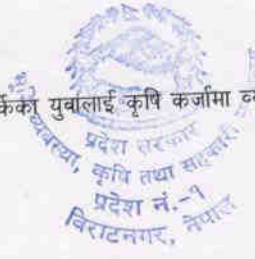 र्केका युवालाई कृषि कर्जामा
प्रदेश सरकार
व्यवस्था, कृषि तथा सहकारी
प्रदेश नं.-१
विराटनगर, नेपाल